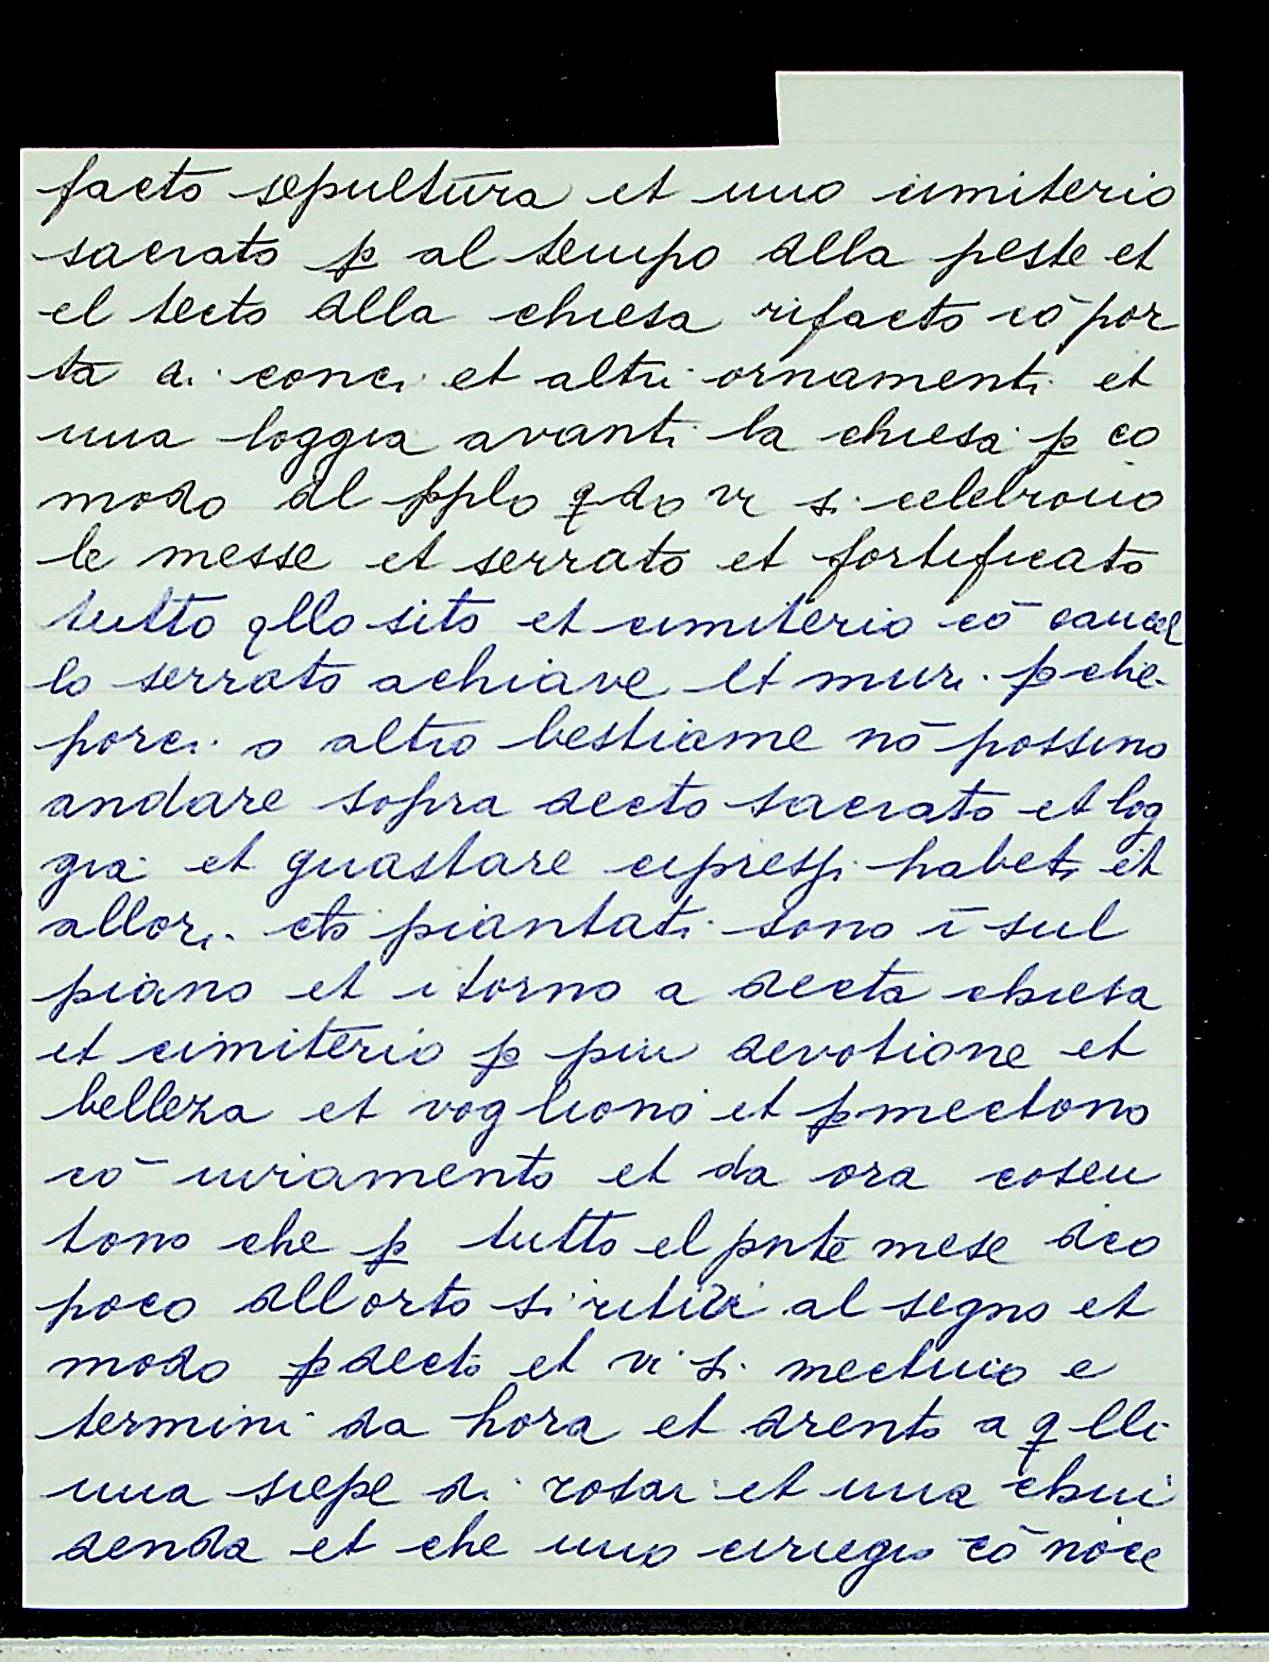 facto sepultura et uno cimiterio
sacrato p̱ al tempo dlla peste et
el tecto dlla chiesa rifacto cō por
ta di conci et altri ornamenti et
una loggia avanti la chiesa p̱ co
modo dl p̱plo qdo vi si celebrono
le messe et serrato et fortificato
tutto qllo sito et cimiterio cō cancel
lo serrato achiave et muri p̱che
porci o altro bestiame nō possino
andare sopra decto sacrato et log
gia et guastare cipressi habeti et
allori piantati sono ī sul
piano et itorno a decta chiesa
et cimiterio p̱ piu devotione et
belleza et vogliono et p̱mectono
cō iuriamento et da ora cosen
tono che p̱ tutto el pnte mese dco
poco dllorto si ritiri al segno et
modo p̱decto et vi si mectino e
termini da hora et drento a qlli
una siepe di rosai et una chiu
denda et che uno ciriegio cō noce